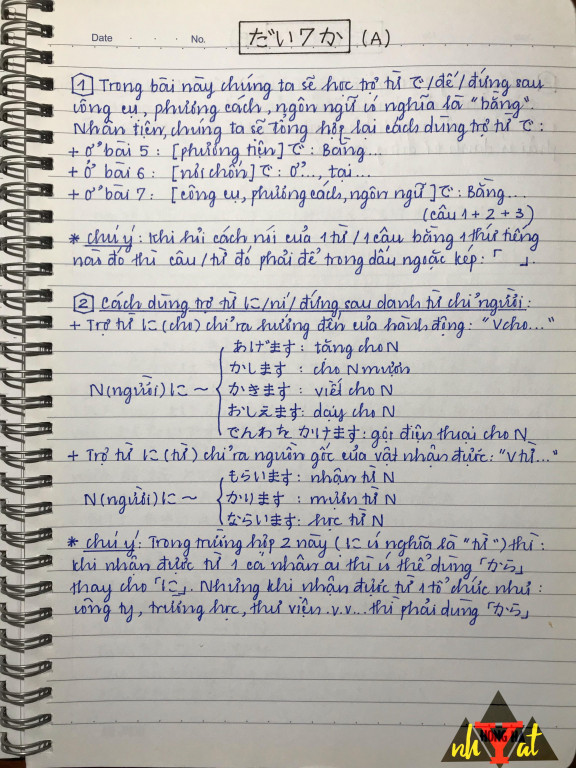 Date No.
だい7か (A)
1 Trong bài này chúng ta sẽ học trợ từ で/đế/đứng sau
công cụ, phương cách, ngôn ngữ có nghĩa là "bằng".
Nhân tiện, chúng ta sẽ tổng hợp lại cách dùng trợ từ で:
+ Ở bài 5: [phương tiện] で: Bằng...
+ Ở bài 6: [nơi chốn] で: Ở..., tại...
+ Ở bài 7: [công cụ, phương cách, ngôn ngữ] で: Bằng...
(câu 1+2+3)
* chú ý: Khi hỏi cách nói của 1 từ/1 câu bằng 1 thứ tiếng
nào đó thì câu/từ đó phải để trong dấu ngoặc kép:「 」.
2 Cách dùng trợ từ に/ni/đứng sau danh từ chỉ người:
+ Trợ từ に (cho) chỉ ra hướng đến của hành động: "V cho..."
あげます: tặng cho N
かします: cho N mượn
N(người) に ~ かきます: viết cho N
おしえます: dạy cho N
でんわを かけます: gọi điện thoại cho N
+ Trợ từ に (từ) chỉ ra nguồn gốc của vật nhận được: "V từ..."
もらいます: nhận từ N
N(người) に ~ かります: mượn từ N
ならいます: học từ N
* chú ý: Trong trường hợp 2 này (に có nghĩa là "từ") thì:
khi nhận được từ 1 cá nhân ai thì có thể dùng 「から」
thay cho「に」. Nhưng khi nhận được từ 1 tổ chức như:
công ty, trường học, thư viện.v.v... thì phải dùng 「から」
nhYat